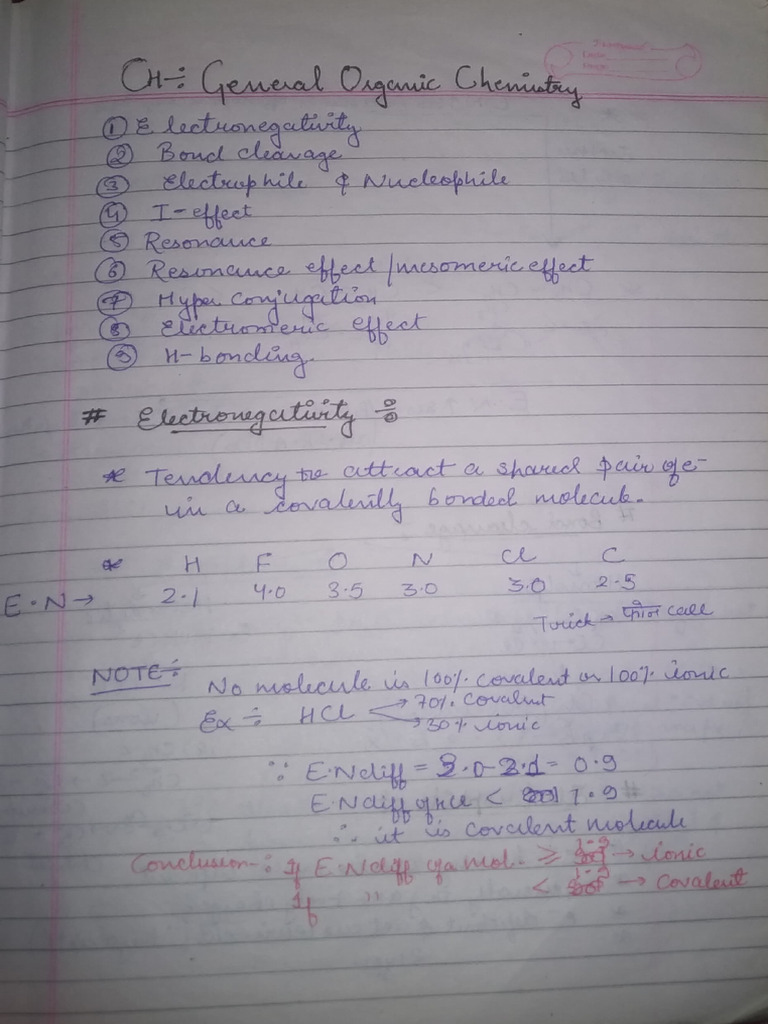 CH÷ General Organic Chemistry
① Electronegativity
② Bond cleavage
③ Electrophile & Nucleophile
④ I-effect
⑤ Resonance
⑥ Resonance effect/mesomeric effect
⑦ Hyper conjugation
⑧ Electromeric effect
⑨ H-bonding.
# Electronegativity ÷
* Tendency to attract a shared pair of e-
in a covalently bonded molecule.
* H F O N Cl C
E.N → 2.1 4.0 3.5 3.0 3.0 2.5
Trick → फोन call
NOTE÷ No molecule is 100% covalent or 100% ionic
Ex ÷ HCl → 70% covalent
→ 30% ionic
∵ E.N diff = 3.0-2.1 = 0.9
E.N diff of HCl < 1.9
∴ it is covalent molecule
Conclusion-: If E.N diff of a mol. ≥ 1.9 → ionic
If " < 1.9 → Covalent